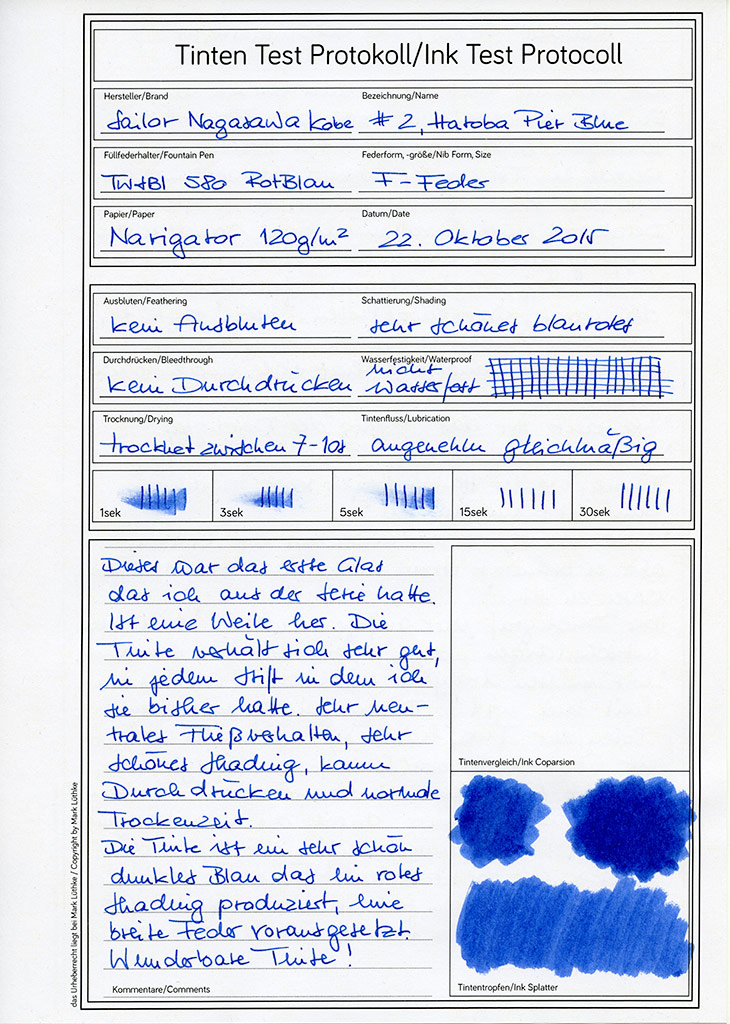 Tinten Test Protokoll/Ink Test Protocoll
Hersteller/Brand
Sailor Nagasawa Kobe
Bezeichnung/Name
#2, Hatoba Pier Blue
Füllfederhalter/Fountain Pen
TWSBI 580 RotBlau
Federform, -größe/Nib Form, Size
F-Feder
Papier/Paper
Navigator 120g/m²
Datum/Date
22. Oktober 2015
Ausbluten/Feathering
kein Ausbluten
Schattierung/Shading
sehr schönes blaurotes
Durchdrücken/Bleedthrough
kein Durchdrücken
Wasserfestigkeit/Waterproof
nicht
wasserfest
Trocknung/Drying
trocknet zwischen 7-10s
Tintenfluss/Lubrication
angenehm gleichmäßig
1sek
3sek
5sek
15sek
30sek
Dieses war das erste Glas
das ich aus der Serie hatte.
Ist eine Weile her. Die
Tinte verhält sich sehr gut,
in jedem Stift in dem ich
sie bisher hatte. Sehr neu-
trales Fließverhalten, sehr
schönes Shading, kaum
Durchdrücken und normale
Trockenzeit.
Die Tinte ist ein sehr schön
dunkles Blau das ein rotes
Shading produziert, eine
breite Feder vorausgesetzt.
Wunderbare Tinte!
Kommentare/Comments
Tintenvergleich/Ink Coparsion
Tintentropfen/Ink Splatter
das Urheberrecht liegt bei Mark Lüthke / Copyright by Mark Lüthke